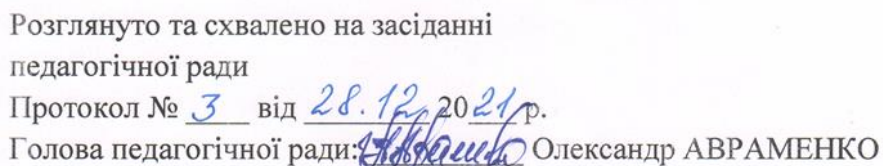 Розглянуто та схвалено на засіданні
педагогічної ради
Протокол № 3 від 28.12 2021 р.
Голова педагогічної ради: Олександр АВРАМЕНКО